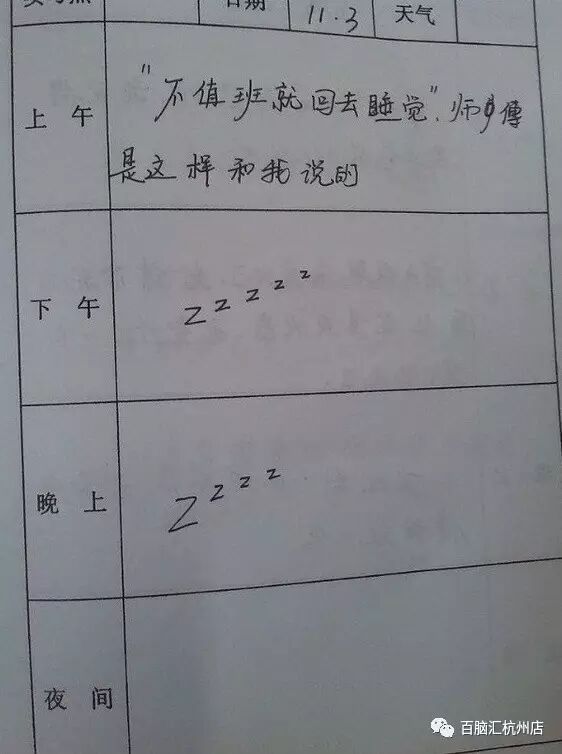 日期 11.3 天气
上 午
"不值班就回去睡觉",师傅
是这样和我说的
下 午
z z z z z
晚 上
Z z z z
夜 间
百脑汇杭州店